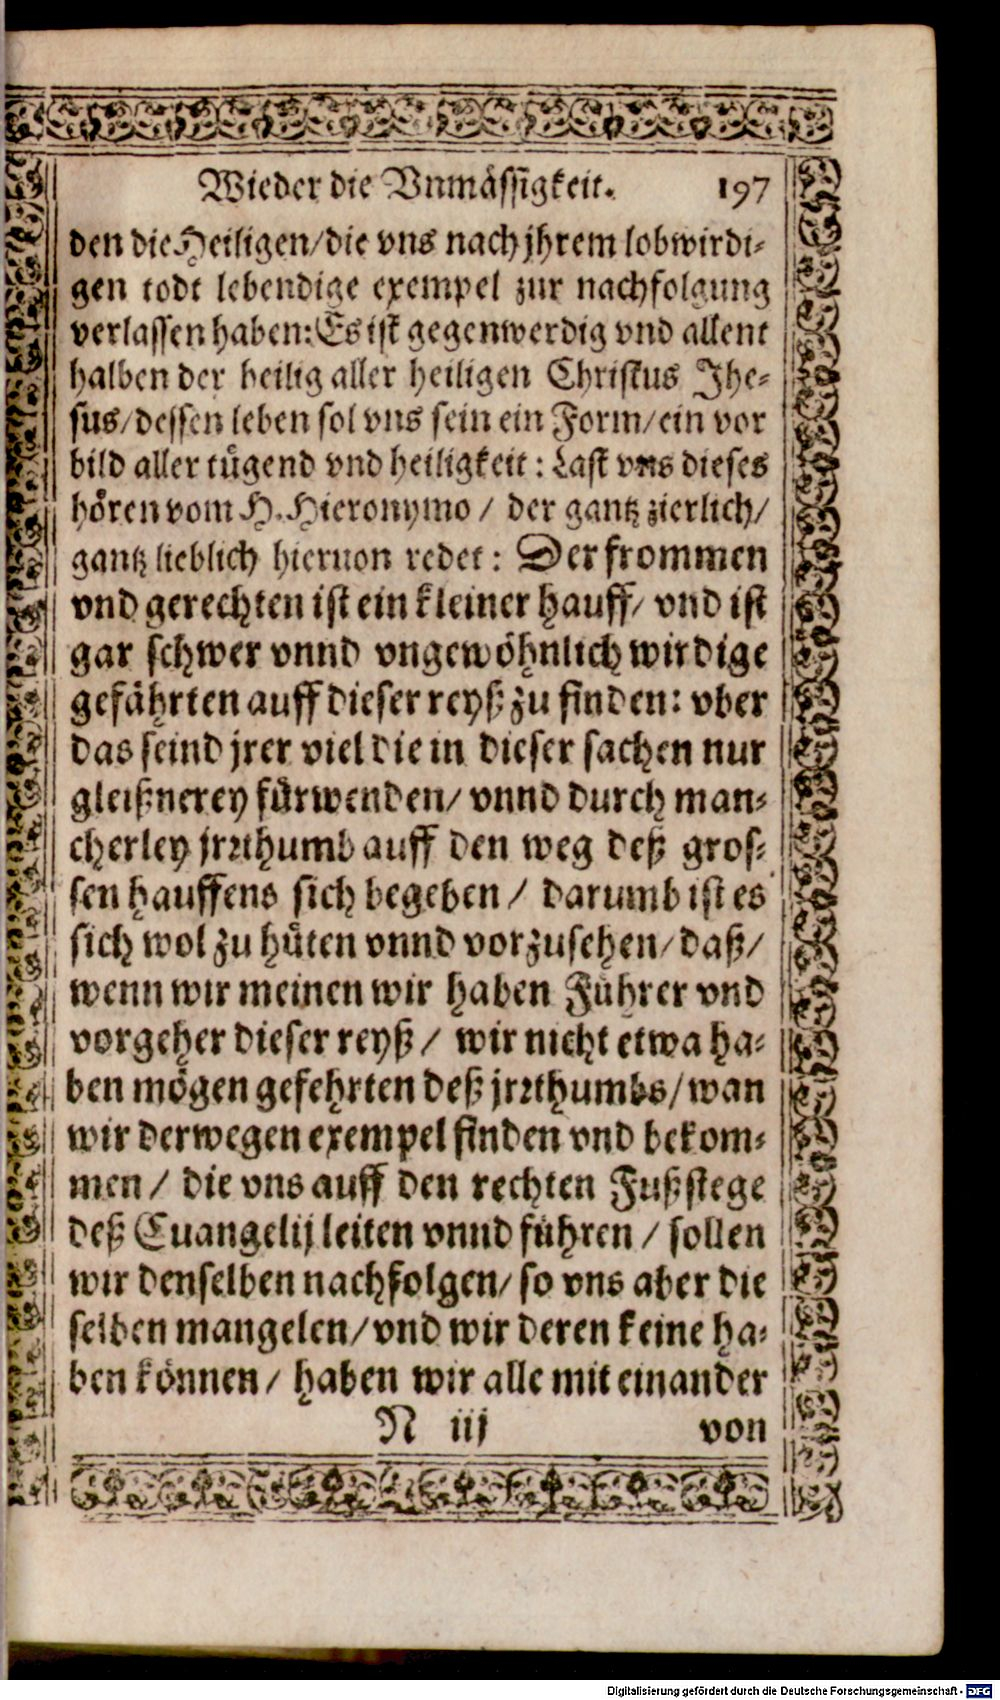 Wieder die Vnmässigkeit. 197
den die Heiligen/die vns nach jhrem lobwirdi-
gen todt lebendige exempel zur nachfolgung
verlassen haben: Es ist gegenwerdig vnd allent
halben der heilig aller heiligen Christus Jhe-
sus/dessen leben sol vns sein ein Form/ein vor
bild aller tůgend vnd heiligkeit: Last vns dieses
hören vom H. Hieronymo / der gantz zierlich/
gantz lieblich hieruon redet: Der frommen
vnd gerechten ist ein kleiner hauff/ vnd ist
gar schwer vnnd vngewöhnlich wirdige
gefährten auff dieser reyß zu finden: vber
das seind jrer viel die in dieser sachen nur
gleißnerey fůrwenden/ vnnd durch man-
cherley jrrthumb auff den weg deß gros-
sen hauffens sich begeben / darumb ist es
sich wol zu hůten vnnd vorzusehen/daß/
wenn wir meinen wir haben Fůhrer vnd
vorgeher dieser reyß / wir nicht etwa ha-
ben mögen gefehrten deß jrrthumbs/wan
wir derwegen exempel finden vnd bekom-
men / die vns auff den rechten Fußstege
deß Euangelij leiten vnnd fůhren / sollen
wir denselben nachfolgen/ so vns aber die
selben mangelen/vnd wir deren keine ha-
ben können / haben wir alle mit einander
N iij von
Digitalisierung gefördert durch die Deutsche Forschungsgemeinschaft - DFG